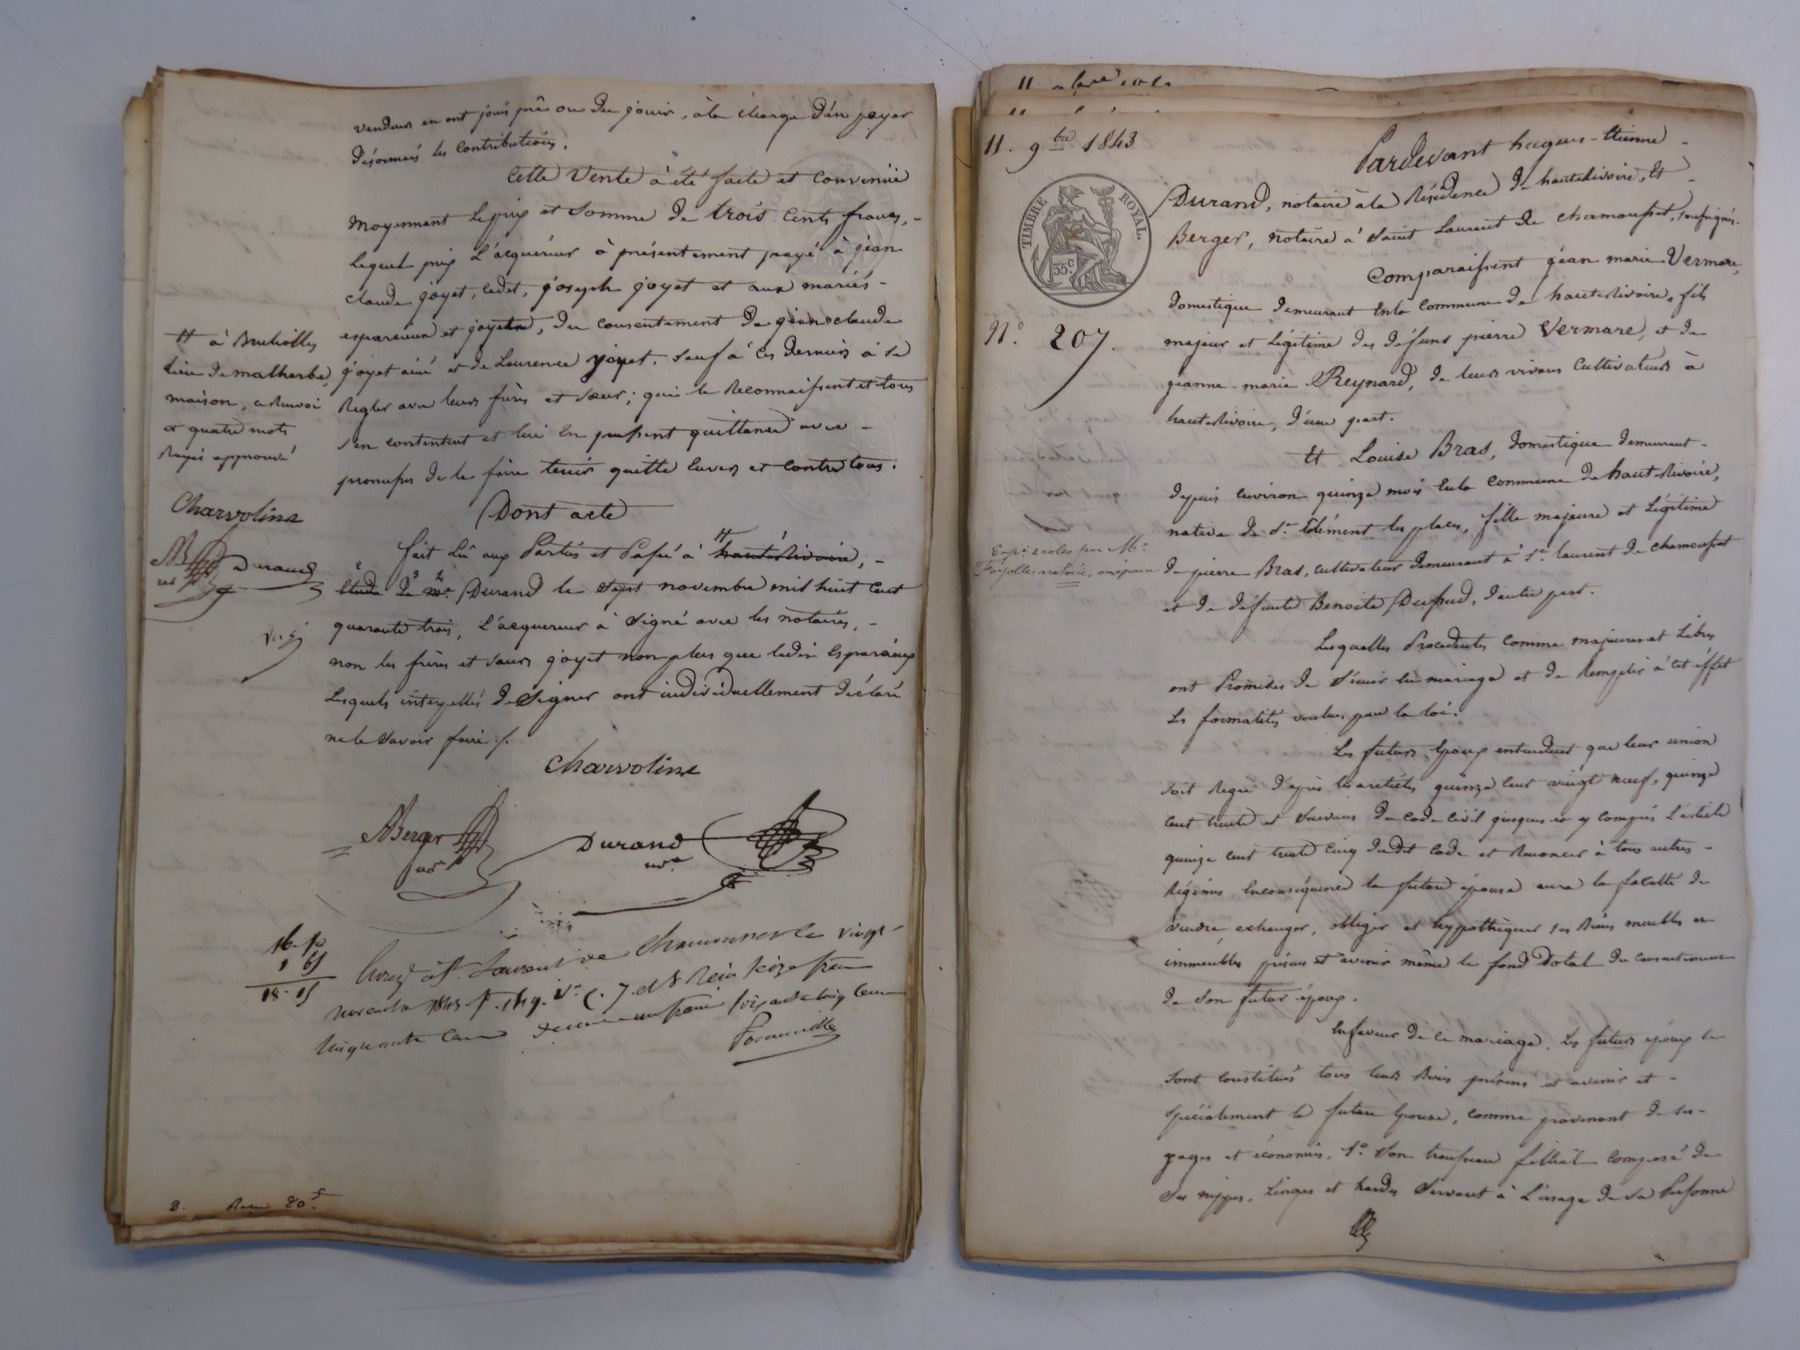 vendeurs en ont joui pû ou du jouir, à la charge d'en payer
désormais les contributions.
Cette Vente à été faite et convenüe
moyennant le prix et somme de trois cents francs, -
lequel prix l'acquéreur à présentement payé à jéan
claude joyet, cadet, joseph joyet et aux mariés -
esparcieux et joyet, du consentement de jéan claude
joyet ainé et de Laurence joyet, sauf à ces derniers à se
Regler avec leurs frères et sœur; qui le Reconnaissent et tous
s'en contentent et lui en passent quittance avec -
promesses de le faire tenir quitte envers et contre tous.
Dont acte
fait Lû aux Parties et Passé à # hauterivoire, -
étude de me Durand le sept novembre mil huit cent
quarante trois, L'acquereur à signé avec les notaires, -
non les frères et sœurs joyet non plus que ledit Esparcieux
Lesquels interpellés de signer ont individuellement déclaré
ne le savoir faire ./.
# à Brulioles
lieu de malherbe,
maison, ce Renvoi
et quatre mots
Rayés approuvé
Charvolin
Durand
Charvolin
ABerger
not
Durand
nore
16 50
1 65
18 15
Enreg à St Laurent de Chamousset le vingt
novembre 1843 fo 149. Vo C. 7 et 8 Reçu seize francs
cinquante cent decime un franc soixante cinq cent
D. Reçu 20 f
11. 9bre 1843
TIMBRE ROYAL.
35c
No 207.
Pardevant hugues-Etienne -
Durand, notaire à la Résidence de hauterivoire, Et -
Berger, notaire à saint Laurent de chamousset, soussignés.
Comparaissent jéan marie Vermare,
domestique demeurant en la commune de hauterivoire, fils
majeur et légitime des défunts pierre Vermare, et de
jeanne-marie Reynard, de leurs vivans cultivateurs à
hauterivoire, d'une part.
Et Louise Bras, domestique demeurant -
depuis environ quinze mois en la commune de hauterivoire,
native de St Clément les places, fille majeure et légitime
de pierre Bras, cultivateur demeurant à St laurent de chamousset
et de défunte Benoite Dussud, d'autre part.
Expn à celes par Me
Fayolle notaire, aux époux
Lesquelles Procedentes comme majeures et Libres
ont Promises de s'unir en mariage et de Remplir à cet éffet
les formalités voulues par la loi.
Les futurs Epoux entendent que leur union
soit Régie d'après les articles quinze cent vingt neuf, quinze
cent trente et suivans du code civil jusques et y compris L'article
quinze cent trente cinq dudit code et Renoncer à tous autres -
Régimes En conséquence la future épouse aura la faculté de
vendre, echanger, obliger et hypothéquer ses Biens meubles et
immeubles présens et avenir même le fond Dotal du consentement
de son futur époux.
En faveur de ce mariage. Les futurs époux se
sont constitués tous leurs Biens présens et avenir et -
spécialement la future Epouse, comme provenant de ses -
gages et économies, 1o son trousseau filliat composé de
ses nippes, Linges et hardes servant à L'usage de sa Personne